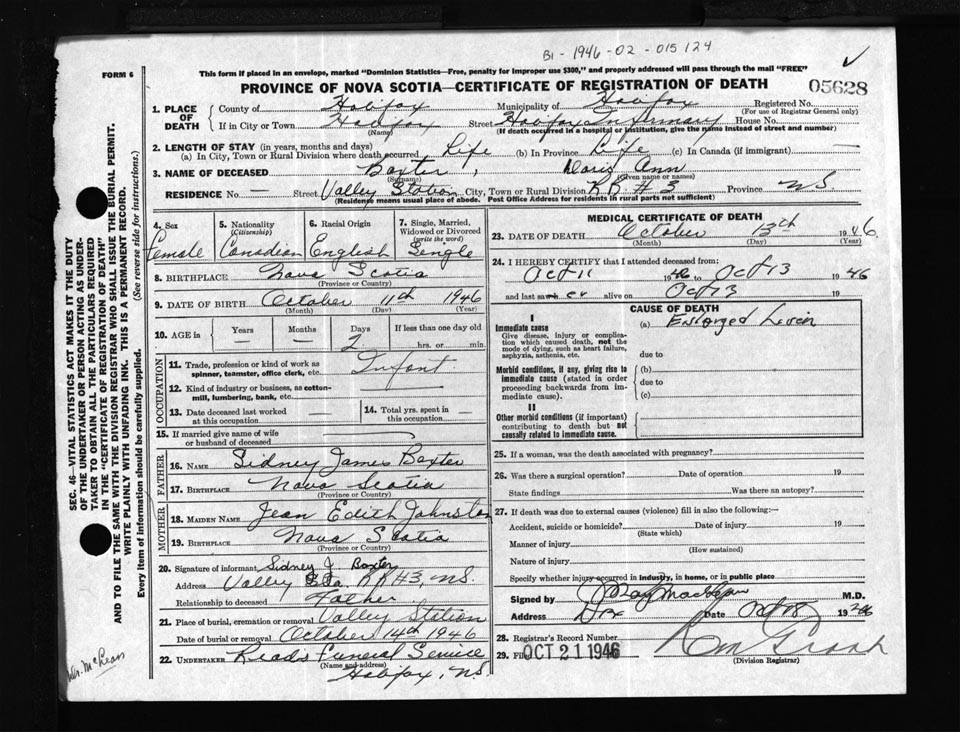 B1 - 1946 - 02 - 015124
FORM 6
This form if placed in an envelope, marked "Dominion Statistics—Free, penalty for improper use $300," and properly addressed will pass through the mail "FREE"
PROVINCE OF NOVA SCOTIA—CERTIFICATE OF REGISTRATION OF DEATH
05628
1. PLACE OF DEATH { County of Halifax Municipality of Halifax Registered No.
(For use of Registrar General only)
If in City or Town Halifax Street Halifax Infirmary House No.
(Name) (If death occurred in a hospital or institution, give the name instead of street and number)
2. LENGTH OF STAY (in years, months and days)
(a) In City, Town or Rural Division where death occurred Life (b) In Province Life (c) In Canada (if immigrant) —
3. NAME OF DECEASED Baxter, Doris Ann
(Surname) (Given name or names)
RESIDENCE No. — Street Valley Station City, Town or Rural Division RR #3 Province NS
(Residence means usual place of abode. Post Office Address for residents in rural parts not sufficient)
4. Sex 5. Nationality (Citizenship) 6. Racial Origin 7. Single, Married, Widowed or Divorced (write the word)
Female Canadian English Single
8. BIRTHPLACE Nova Scotia
(Province or Country)
9. DATE OF BIRTH October 11th 1946
(Month) (Day) (Year)
10. AGE in { Years Months Days If less than one day old
— — 2 hrs. or min.
OCCUPATION
11. Trade, profession or kind of work as spinner, teamster, office clerk, etc. Infant
12. Kind of industry or business, as cotton-mill, lumbering, bank, etc.
13. Date deceased last worked at this occupation — 14. Total yrs. spent in this occupation —
15. If married give name of wife or husband of deceased
FATHER
16. NAME Sidney James Baxter
17. BIRTHPLACE Nova Scotia
(Province or Country)
MOTHER
18. MAIDEN NAME Jean Edith Johnston
19. BIRTHPLACE Nova Scotia
(Province or Country)
20. Signature of informant Sidney J. Baxter
Address Valley Sta. RR #3 NS.
Relationship to deceased Father
21. Place of burial, cremation or removal Valley Station
Date of burial or removal October 14th 1946
22. UNDERTAKER Reads Funeral Service
(Name and address)
Halifax, NS.
MEDICAL CERTIFICATE OF DEATH
23. DATE OF DEATH October 13th 1946.
(Month) (Day) (Year)
24. I HEREBY CERTIFY that I attended deceased from:
Oct 11 1946 to Oct 13 1946
and last saw er alive on Oct 13 19
CAUSE OF DEATH
I
Immediate cause
Give disease, injury or complication which caused death, not the mode of dying, such as heart failure, asphyxia, asthenia, etc.
(a) Enlarged
due to
Morbid conditions, if any, giving rise to immediate cause (stated in order proceeding backwards from immediate cause).
(b)
due to
(c)
II
Other morbid conditions (if important) contributing to death but not causally related to immediate cause.
25. If a woman, was the death associated with pregnancy?
26. Was there a surgical operation? Date of operation 19
State findings Was there an autopsy?
27. If death was due to external causes (violence) fill in also the following:—
Accident, suicide or homicide? Date of injury 19
(State which)
Manner of injury
(How sustained)
Nature of injury
Specify whether injury occurred in industry, in home, or in public place
Signed by M.D.
Address Date Oct 18 1946
28. Registrar's Record Number
29. Filed OCT 21 1946
(Division Registrar)
SEC. 46—VITAL STATISTICS ACT MAKES IT THE DUTY OF THE UNDERTAKER OR PERSON ACTING AS UNDERTAKER TO OBTAIN ALL THE PARTICULARS REQUIRED IN THE "CERTIFICATE OF REGISTRATION OF DEATH" AND TO FILE THE SAME WITH THE DIVISION REGISTRAR WHO SHALL ISSUE THE BURIAL PERMIT.
WRITE PLAINLY WITH UNFADING INK. THIS IS A PERMANENT RECORD.
Every item of information should be carefully supplied. (See reverse side for instructions.)
McLean